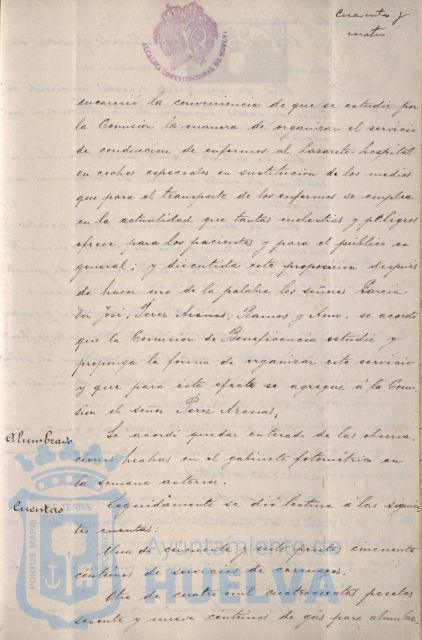 Cuarenta y
cuatro
ALCALDIA CONSTITUCIONAL DE HUELVA
encareció la conveniencia de que se estudie por
la Comisión la manera de organizar el servicio
de conduccion de enfermos al Lazareto-hospital
en coches especiales en sustitucion de los medios
que para el transporte de los enfermos se emplea
en la actualidad que tantas molestias y peligros
ofrece para los pacientes y para el público en
general; y discutida esta proposicion despues
de hacer uso de la palabra los señores Garcia
don José, Perez Arenas, Ramos y , se acordó
que la Comision de Beneficencia estudie y
proponga la forma de organizar este servicio
y que para este efecto se agregue á la Comi-
sion el señor Perez Arenas.
Alumbrado
Se acordó quedar enterado de las observa-
ciones hechas en el gabinete fotométrico en
la semana anterior.
Cuentas
Seguidamente se dió lectura á las siguien-
tes cuentas:
Una de cincuenta y siete pesetas cincuenta
centimos de servicios de carruages.
Otra de cuatro mil cuatrocientas pesetas
sesenta y nueve centimos de gas para alumbra-
PORTUS MARIS
TERRAE
Ayuntamiento de
HUELVA